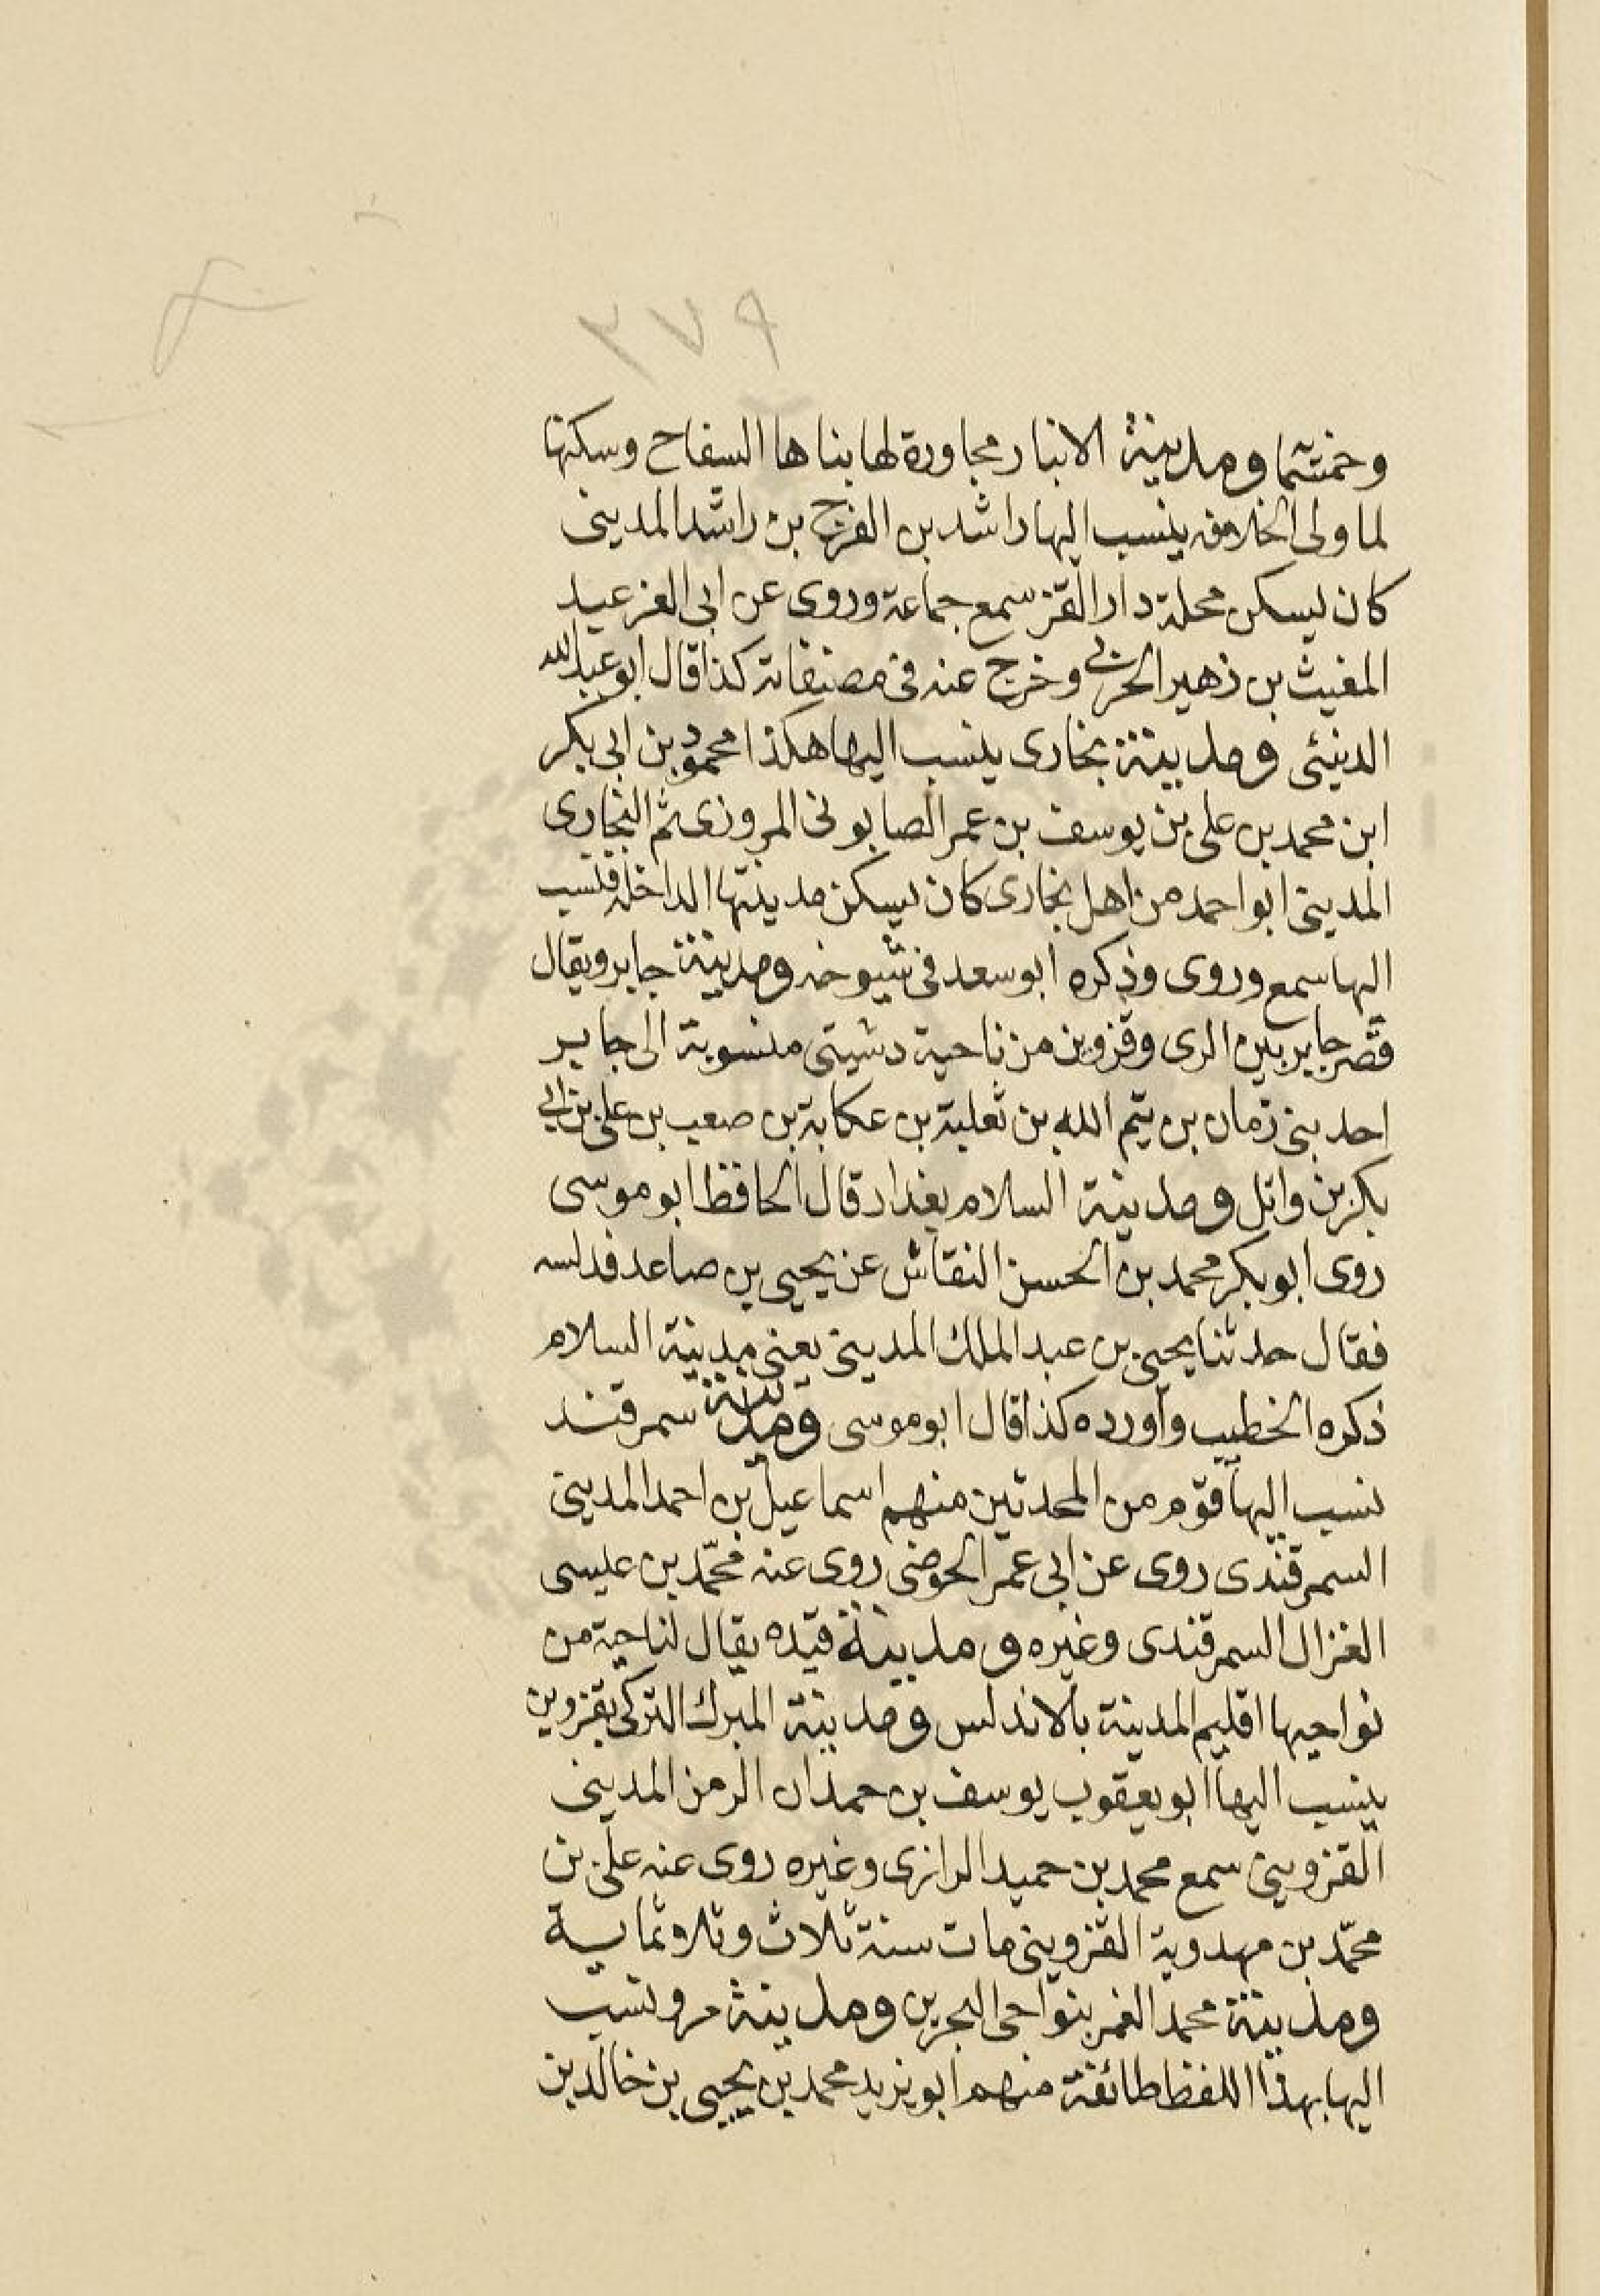 ٣٧٩
وخمشما ومدينة الانبار مجاورة لها بناها السفاح وسكنها
لما ولى الخلافه ينسب اليها راشد بن الفرج بن راشد المدينى
كان يسكن محلة دار القز سمع جماعة وروى عن ابى العز عبد
المغيث بن زهير الحربى وخرج عنه فى مصنفاته كذا قال ابو عبد الله
الدبيثى ومدينة بخارى ينسب اليها هكذا محمود بن ابى بكر
ابن محمد بن على بن يوسف بن عمر الصابونى المروزى ثم البخارى
المدينى ابو احمد من اهل بخارى كان يسكن مدينتها الداخله فنسب
اليها سمع وروى وذكره ابو سعد فى شيوخه ومدينة جابر ويقال
قصر جابر بين الرى وقزوين من ناحية دشتبى منسوبة الى جابر
احد بنى زمان بن يتم الله بن ثعلبة بن عكابة بن صعب بن على بن ابى
بكر بن وائل ومدينة السلام بغداد قال الحافظ ابو موسى
روى ابو بكر محمد بن الحسن النقاش عن يحيى بن صاعد فدلسه
فقال حدثنا يحيى بن عبد الملك المدينى يعنى مدينة السلام
ذكره الخطيب واورده كذا قال ابو موسى ومدينة سمرقند
نسب اليها قوم من المحدثين منهم اسماعيل بن احمد المدينى
السمرقندى روى عن ابى عمر الحوضى روى عنه محمّد بن عيسى
الغزال السمرقندى وغيره ومدينة قبّره يقال لناحية من
نواحيها اقليم المدينة بالاندلس ومدينة المبرك التركى بقزوين
ينسب اليها ابو يعقوب يوسف بن حمدان الزمن المدينى
القزوينى سمع محمد بن حميد الرازى وغيره روى عنه على بن
محمّد بن مهدوية القزوينى مات سنة ثلاث وثلاثماية
ومدينة محمد الغمر بنواحى البحرين ومدينة مرو نسب
اليها بهذا اللفظ طائفة منهم ابو يزيد محمد بن يحيى بن خالد بن